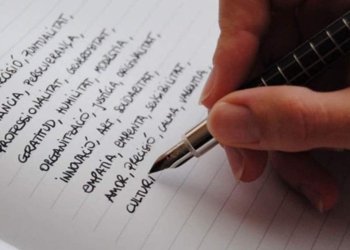 CISIÓ, PUNTUALITAT,
ÀNCIA, PERSEVERANÇA,
PROFESSIONALITAT, GENEROSITAT,
GRATITUD, HUMILITAT, MODÈSTIA,
ORGANITZACIÓ, JUSTÍCIA, ORIGINALITAT,
INNOVACIÓ, ART, SOLIDARITAT,
EMPATIA, EMPENTA, SENSIBILITAT,
AMOR, PRECISIÓ, CALMA,
CULTUR